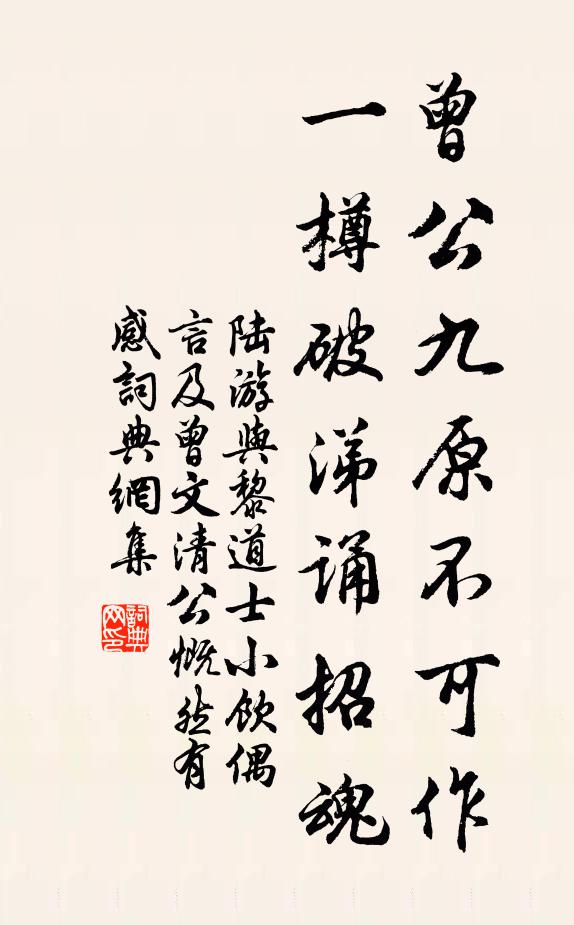 曾公九原不可作
一樽破涕誦招魂
陆游與黎道士小飲偶
言及曾文清公慨然有
感詞典網集
詞典
网印